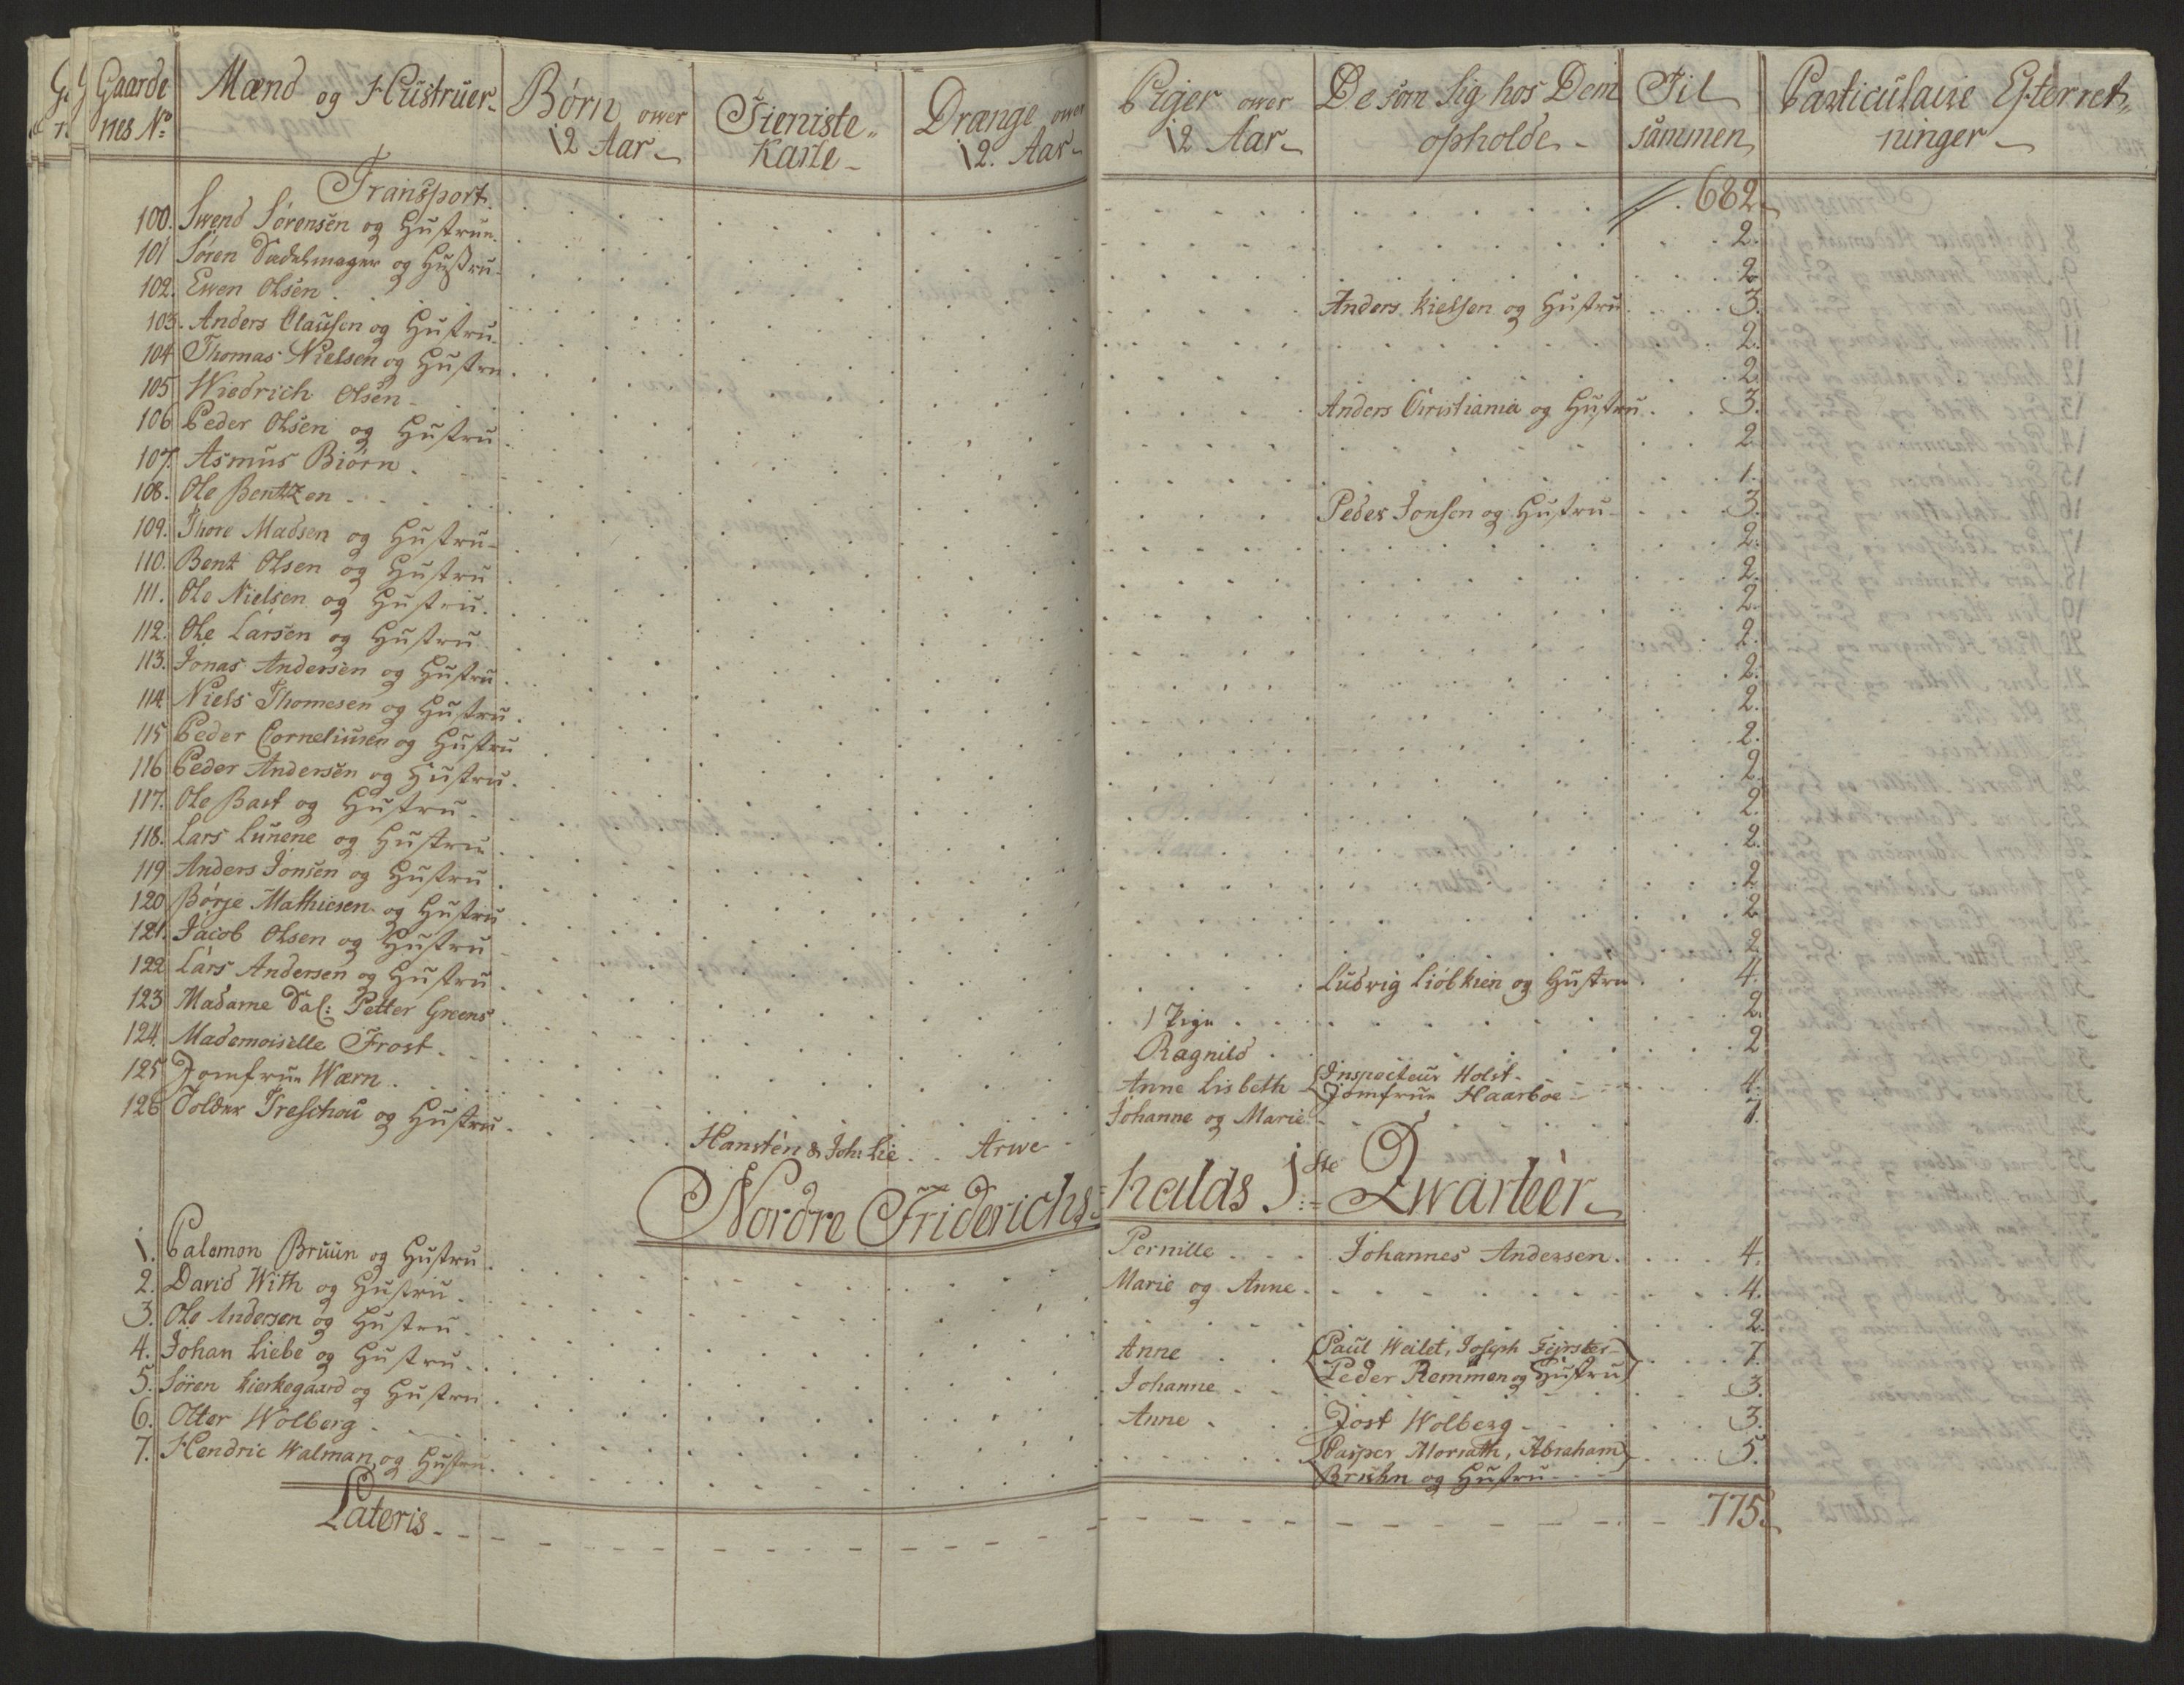 Gaardenes No | Mænd og Hustruer | Børn over 12 Aar | Tieniste Karle | Drænge over 12. Aar | Piger over 12 Aar | De som Sig hos Dem opholde | Til sammen | Particulaire Efterretninger
Transport 682.
100. Svend Sørensen og Hustrue 2.
101 Søren Sadelmager og Hustru 2
102. Even Olsen Anders Kielsen og Hustru 3.
103. Anders Clausen og Hustru 2.
104 Thomas Nielsen og Hustru 2.
105 Wiedrich Olsen Anders Christiania og Hustru 3.
106 Peder Olsen og Hustru 2.
107. Asmus Biörn 1.
108. Ole Bentzen Peder Jonsen og Hustru 3.
109. Thore Madsen og Hustru 2.
110. Bent Olsen og Hustru 2.
111. Ole Nielsen og Hustru 2.
112. Ole Larsen og Hustru 2.
113. Jonas Andersen og Hustru 2.
114 Niels Thomesen og Hustru 2.
115 Peder Corneliusen og Hustru 2.
116 Peder Andersen og Hustru 2.
117. Ole Bast og Hustru 2.
118. Lars Lunene og Hustru 2.
119 Anders Jonsen og Hustru 2
120 Børje Mathiesen og Hustru 2
121. Jacob Olsen og Hustru 2
122 Lars Andersen og Hustru Ludvig Liöbkien og Hustru 4.
123 Madame Sal: Petter Greens 1 Pige 2.
124. Mademoiselle Frost Ragnild 2
125 Jomfrue Wærn Anne Lisbeth Inspecteur Holst Jomfrue Haarboe 4.
126 Tolder Treschou og Hustru Hansten & Joh: Lie Arve Johanne og Marie
Nordre Friderichshalds 1ste Qwarteer
1. Palemon Bruun og Hustru Pernille Johannes Andersen 4.
2. David With og Hustru Marie og Anne 4.
3. Ole Andersen og Hustru 2.
4. Johan Liebe og Hustru Anne Paul Weilet, Joseph Fiyrster Peder Remmen og Hustru 7.
5. Søren Kierkegaard og Hustru Johanne 3.
6. Otter Wolberg Anne Jost Wolberg 3.
7. Hendric Walman og Hustru Casper Morrath, Abraham Bruhn og Hustru 5.
Lateris 775.